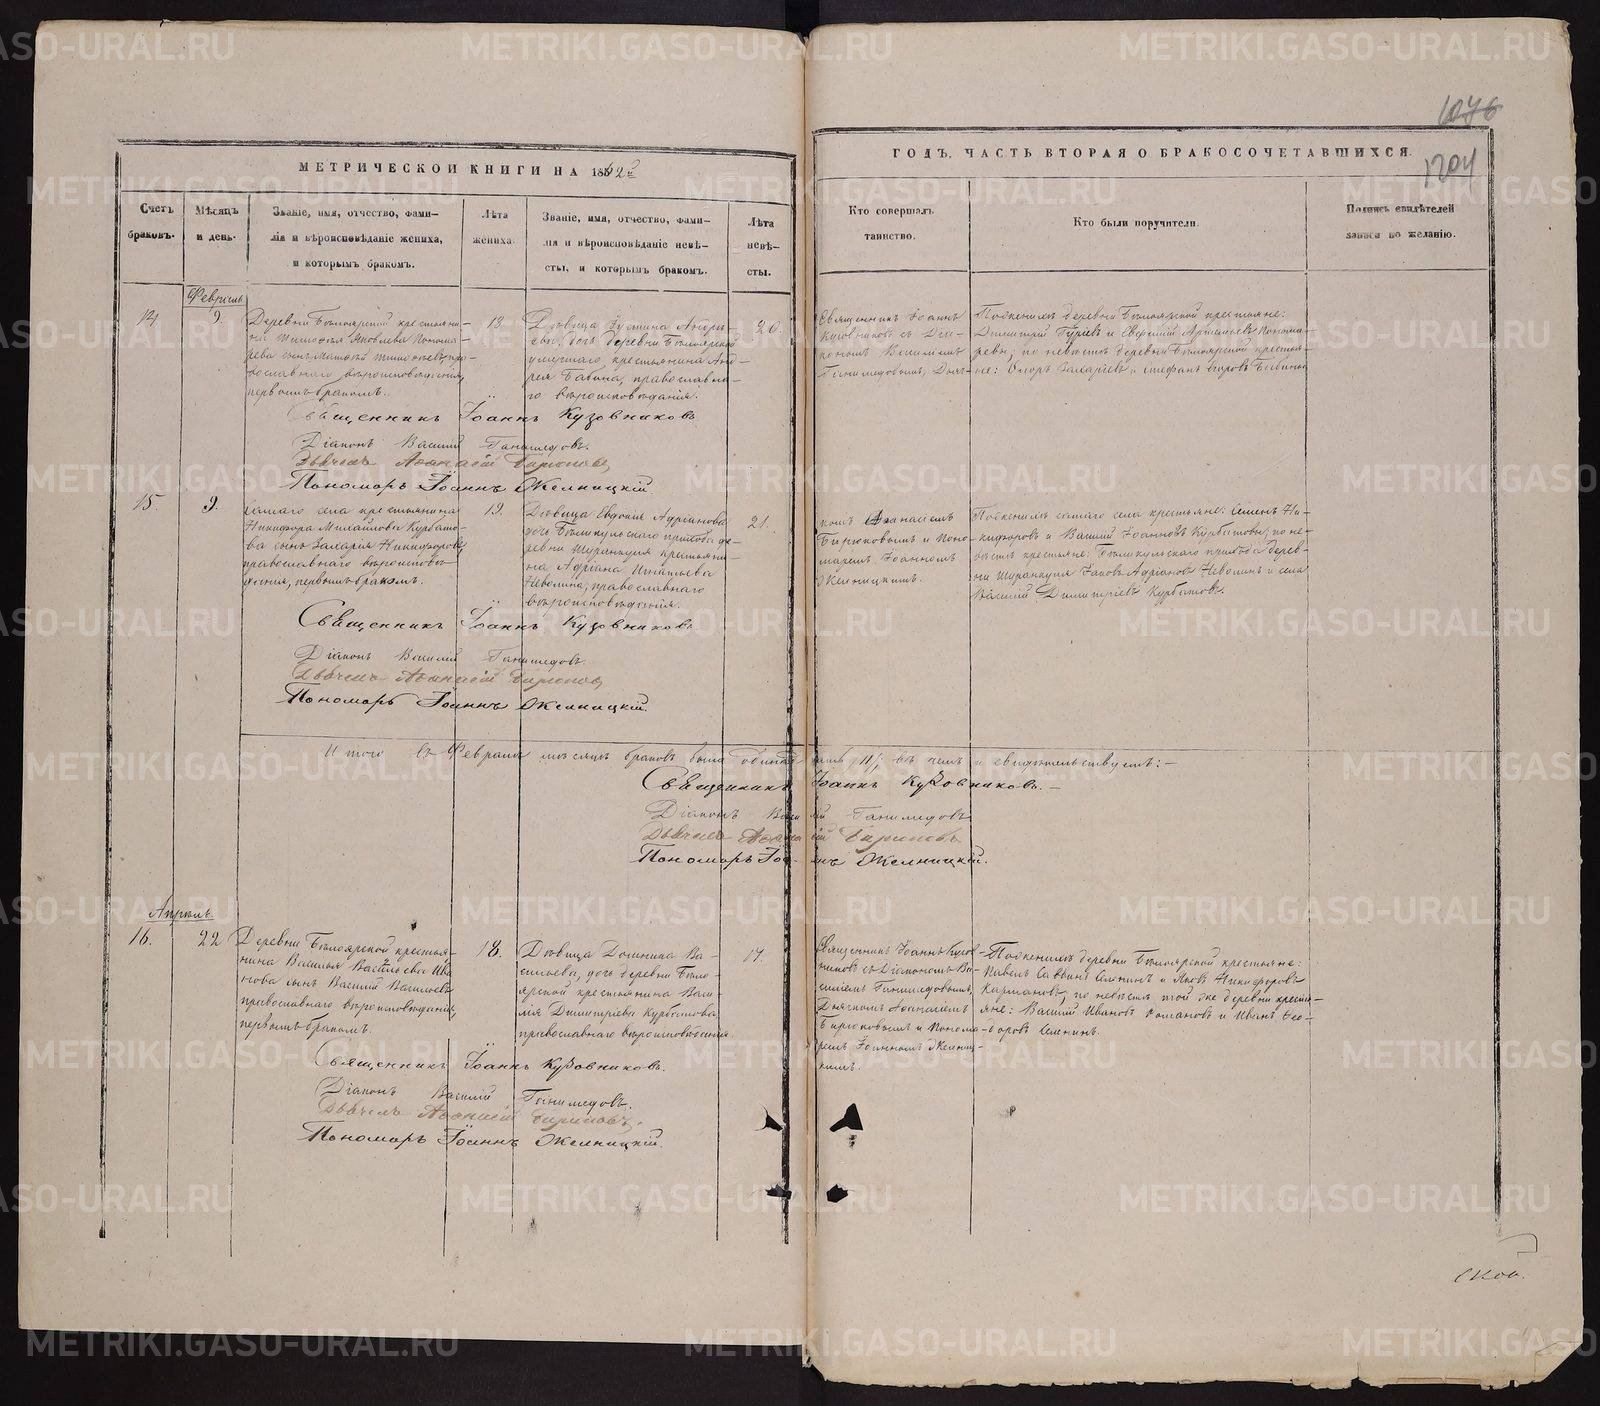 МЕТРИЧЕСКОЙ КНИГИ НА 1862й
ГОДЪ, ЧАСТЬ ВТОРАЯ О БРАКОСОЧЕТАВШИХСЯ.
1076
1204
Счетъ браковъ.
Мѣсяцъ и день.
Званіе, имя, отчество, фами-
лія и вѣроисповѣданіе жениха,
и которымъ бракомъ.
Лѣта жениха.
Званіе, имя, отчество, фами-
лія и вѣроисповѣданіе невѣ-
сты, и которымъ бракомъ.
Лѣта невѣ-
сты.
Кто совершалъ
таинство.
Кто были поручители.
Подпись свидѣтелей
записи по желанію.
Февраль
14
9.
Деревни Бѣлоярской крестьяни-
на Тимофея Яковлева Понома-
рева сынъ Матөей Тимоөеевъ, пра-
вославнаго вѣроисповѣданія,
первымъ бракомъ.
18.
Дѣвица Іустина Андре-
ева, дочь деревни Бѣлоярской
умершаго крестьянина Анд-
рея Бабина, православна-
го вѣроисповѣданія.
20.
Священникъ Іоаннъ
Кузовниковъ съ Діа-
кономъ Василіемъ
Ганимедовымъ, Дьяч-
По женихѣ деревни Бѣлоярской крестьяне:
Димитрій Гуріевъ и Евфимій Арсеньевъ Понома-
ревы; по невѣстѣ деревни Бѣлоярской крестья-
не: Өедоръ Захаріевъ и Стефанъ Егоровъ Бабины
Священникъ Іоаннъ Кузовниковъ
Діаконъ Василій Ганимедовъ.
Дьячекъ Аөанасій Бирюковъ
Пономарь Іоаннъ Желницкій.
15.
9.
Самаго села крестьянина
Никифора Михайлова Курбато-
ва сынъ Захарія Никифоровъ,
православнаго вѣроисповѣ-
данія, первымъ бракомъ.
19.
Дѣвица Евдокія Адріанова
дочь Бѣликульскаго прихода де-
ревни Шуранкуля крестьяни-
на Адріана Игнатьева
Неволина, православнаго
вѣроисповѣданія.
21.
комъ Аөанасіемъ
Бирюковымъ и Поно-
маремъ Іоанномъ
Желницкимъ.
По женихѣ самаго села крестьяне: Семенъ Ни-
кифоровъ и Василій Іоанновъ Курбатовы; по не-
вѣстѣ крестьяне: Бѣликульскаго прихода дерев-
ни Шуранкуля Іаковъ Адріановъ Неволинъ и села
Василій Димитріевъ Курбатовъ.
Священникъ Іоаннъ Кузовниковъ
Діаконъ Василій Ганимедовъ.
Дьячекъ Аөанасій Бирюковъ
Пономарь Іоаннъ Желницкій.
Итого въ Февралѣ мѣсяцѣ браковъ было одиннадцать /11/, въ чемъ и свидѣтельствуемъ: –
Священникъ Іоаннъ Кузовниковъ. –
Діаконъ Василій Ганимедовъ
Дьячекъ Аөанасій Бирюковъ
Пономарь Іоаннъ Желницкій.
Апрѣль.
16.
22
Деревни Бѣлоярской крестья-
нина Василья Васильева Ива-
нова сынъ Василій Васильевъ
православнаго вѣроисповѣданія,
первымъ бракомъ.
18.
Дѣвица Домника Ва-
сильева, дочь деревни Бѣло-
ярской крестьянина Васи-
лія Димитріева Курбатова,
православнаго вѣроисповѣданія.
17.
Священникъ Іоаннъ Кузов-
никовъ съ Діакономъ Ва-
силіемъ Ганимедовымъ,
Дьячкомъ Аөанасіемъ
Бирюковымъ и Понома-
ремъ Іоанномъ Желниц-
кимъ.
По женихѣ деревни Бѣлоярской крестьяне:
Павелъ Саввинъ Семнинъ и Яковъ Никифоровъ
Кармановъ; по невѣстѣ той же деревни кресть-
яне: Василій Ивановъ Романовъ и Иванъ Өео-
доровъ Семнинъ.
Священникъ Іоаннъ Кузовниковъ.
Діаконъ Василій Ганимедовъ.
Дьячекъ Аөанасій Бирюковъ.
Пономарь Іоаннъ Желницкій.
METRIKI.GASO-URAL.RU